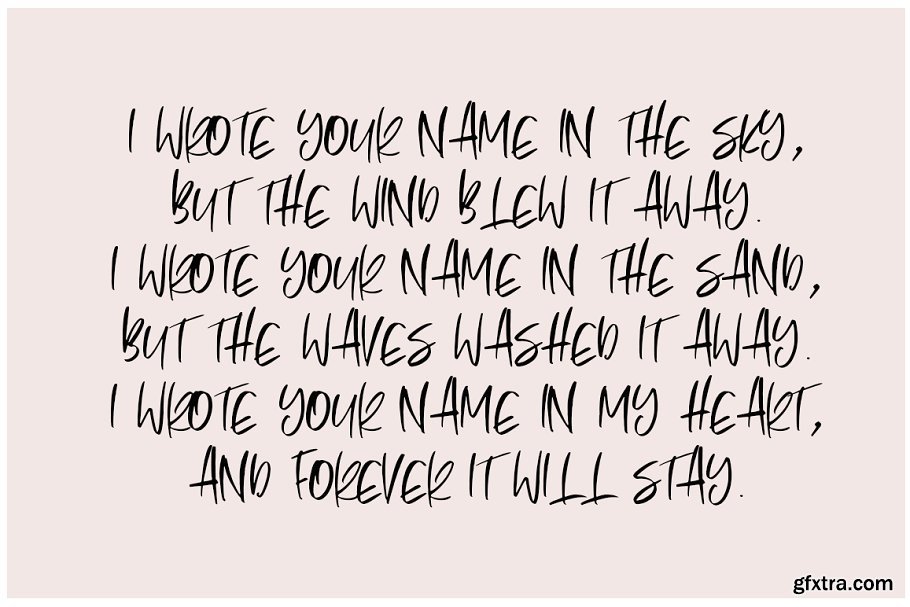 I WROTE YOUR NAME IN THE SKY,
BUT THE WIND BLEW IT AWAY.
I WROTE YOUR NAME IN THE SAND,
BUT THE WAVES WASHED IT AWAY.
I WROTE YOUR NAME IN MY HEART,
AND FOREVER IT WILL STAY.
gfxtra.com